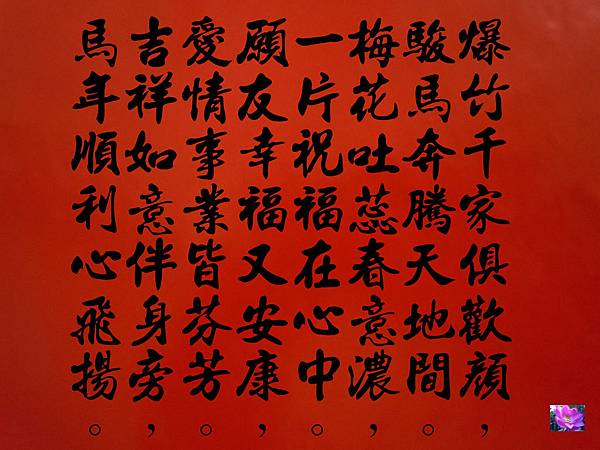 爆竹千家俱歡顔，
駿馬奔騰天地間。
梅花吐蕊春意濃，
一片祝福在心中。
願友幸福又安康，
愛情事業皆芬芳。
吉祥如意伴身旁，
馬年順利心飛揚。